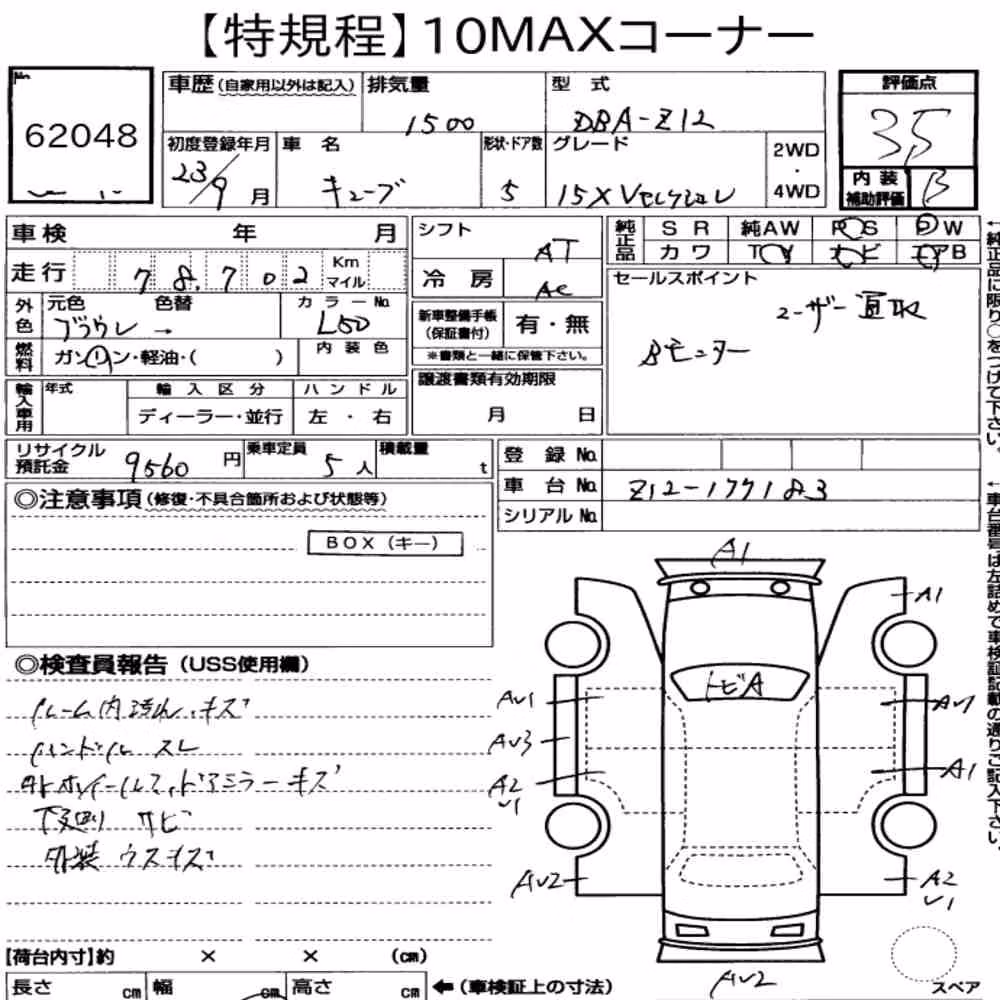 【特規程】10MAXコーナー
No.
62048
車歴(自家用以外は記入)
排気量
1500
型 式
DBA-Z12
評価点
3.5
初度登録年月
23/9月
車 名
キューブ
形状・ドア数
5
グレード
15X Vセレクション
2WD
・
4WD
内 装
補助評価
B
車検 年 月
走行 78,702 Km
マイル
シフト
AT
冷 房
AC
純正品
S R
純AW
P S
P W
カ ワ
T V
ナ ビ
エアB
外色
元色 色替 カ ラ ー No.
ブラウン → L50
燃料
ガソリン・軽油・( )
内 装 色
新車整備手帳
(保証書付)
有・無
※書類と一緒に保管下さい。
セールスポイント
ユーザー買取
Bモニター
輸入車用
年式
輸 入 区 分
ハ ン ド ル
ディーラー・並行
左 ・ 右
譲渡書類有効期限
月 日
リサイクル
預託金
9560 円
乗車定員
5 人
積載量
t
登 録 No.
車 台 No.
Z12-177183
シリアル No.
◎注意事項(修復・不具合箇所および状態等)
BOX(キー)
◎検査員報告(USS使用欄)
ルーム内汚れ、キズ
ハンドル スレ
外装 ウスキズ
下廻り サビ
A1
A1
トビA
AV1
AV3
A2
V1
AV2
A1
A2
V1
AV2
スペア
【荷台内寸】約 × × (cm)
長さ cm
幅 cm
高さ cm
←(車検証上の寸法)
←純正品に限り○をつけて下さい。
←車台番号は左詰めで車検証記載の通りご記入下さい。